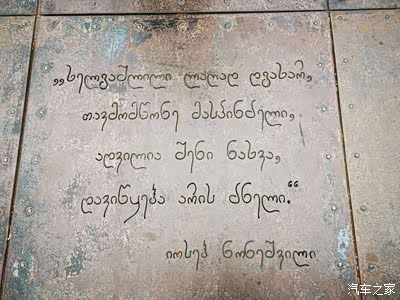 „ხელგაშლილი ლაღად დგახარ,
თავმომწონე მასპინძელი,
ადვილია შენი ნახვა,
დავიწყება არის ძნელი.“
იოსებ ნონეშვილი
汽车之家